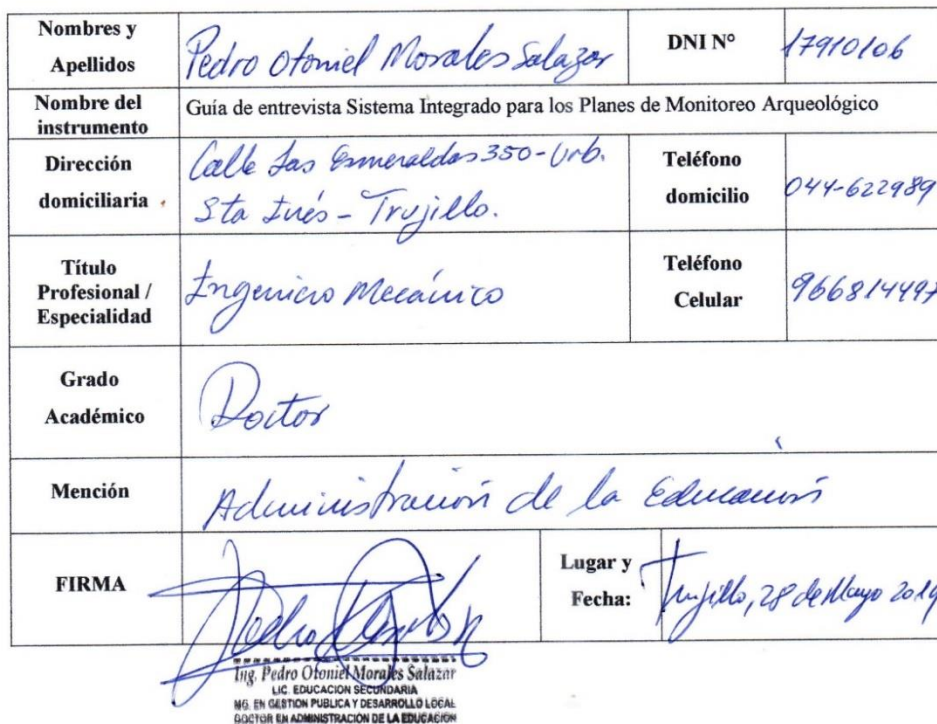 Nombres y Apellidos
Pedro Otoniel Morales Salazar
DNI N°
17910106
Nombre del instrumento
Guía de entrevista Sistema Integrado para los Planes de Monitoreo Arqueológico
Dirección domiciliaria
Calle Las Esmeraldas 350-Urb.
Sta Inés - Trujillo.
Teléfono domicilio
044-622989
Título Profesional / Especialidad
Ingeniero Mecánico
Teléfono Celular
966814497
Grado Académico
Doctor
Mención
Administración de la Educación
FIRMA
Lugar y Fecha:
Trujillo, 28 de Mayo 2019
Ing. Pedro Otoniel Morales Salazar
LIC. EDUCACION SECUNDARIA
MG. EN GESTION PUBLICA Y DESARROLLO LOCAL
DOCTOR EN ADMINISTRACION DE LA EDUCACION